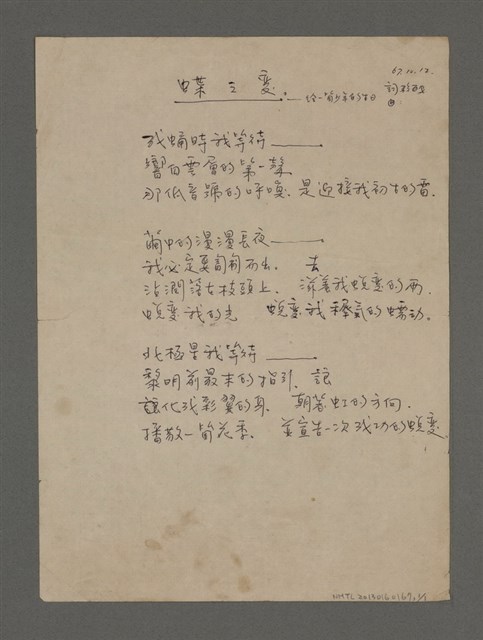 67.10.12.
蝶之變
——給一個少年的生日
成蛹時我等待——
響自雲層的第一聲
那低音號的呼喚. 是迎接我初生的雷.
繭中的漫漫長夜——
我必定要匍匐而出. 去
沾潤落在枝頭上. 滋養我蛻變的雨.
蛻變我的光 蛻變我稚氣的蠕動.
北極星我等待——
黎明前最末的指引. 讓
讓化成彩翼的身. 朝著虹的方向.
播散一個花季. 並宣告一次成功的蛻變.